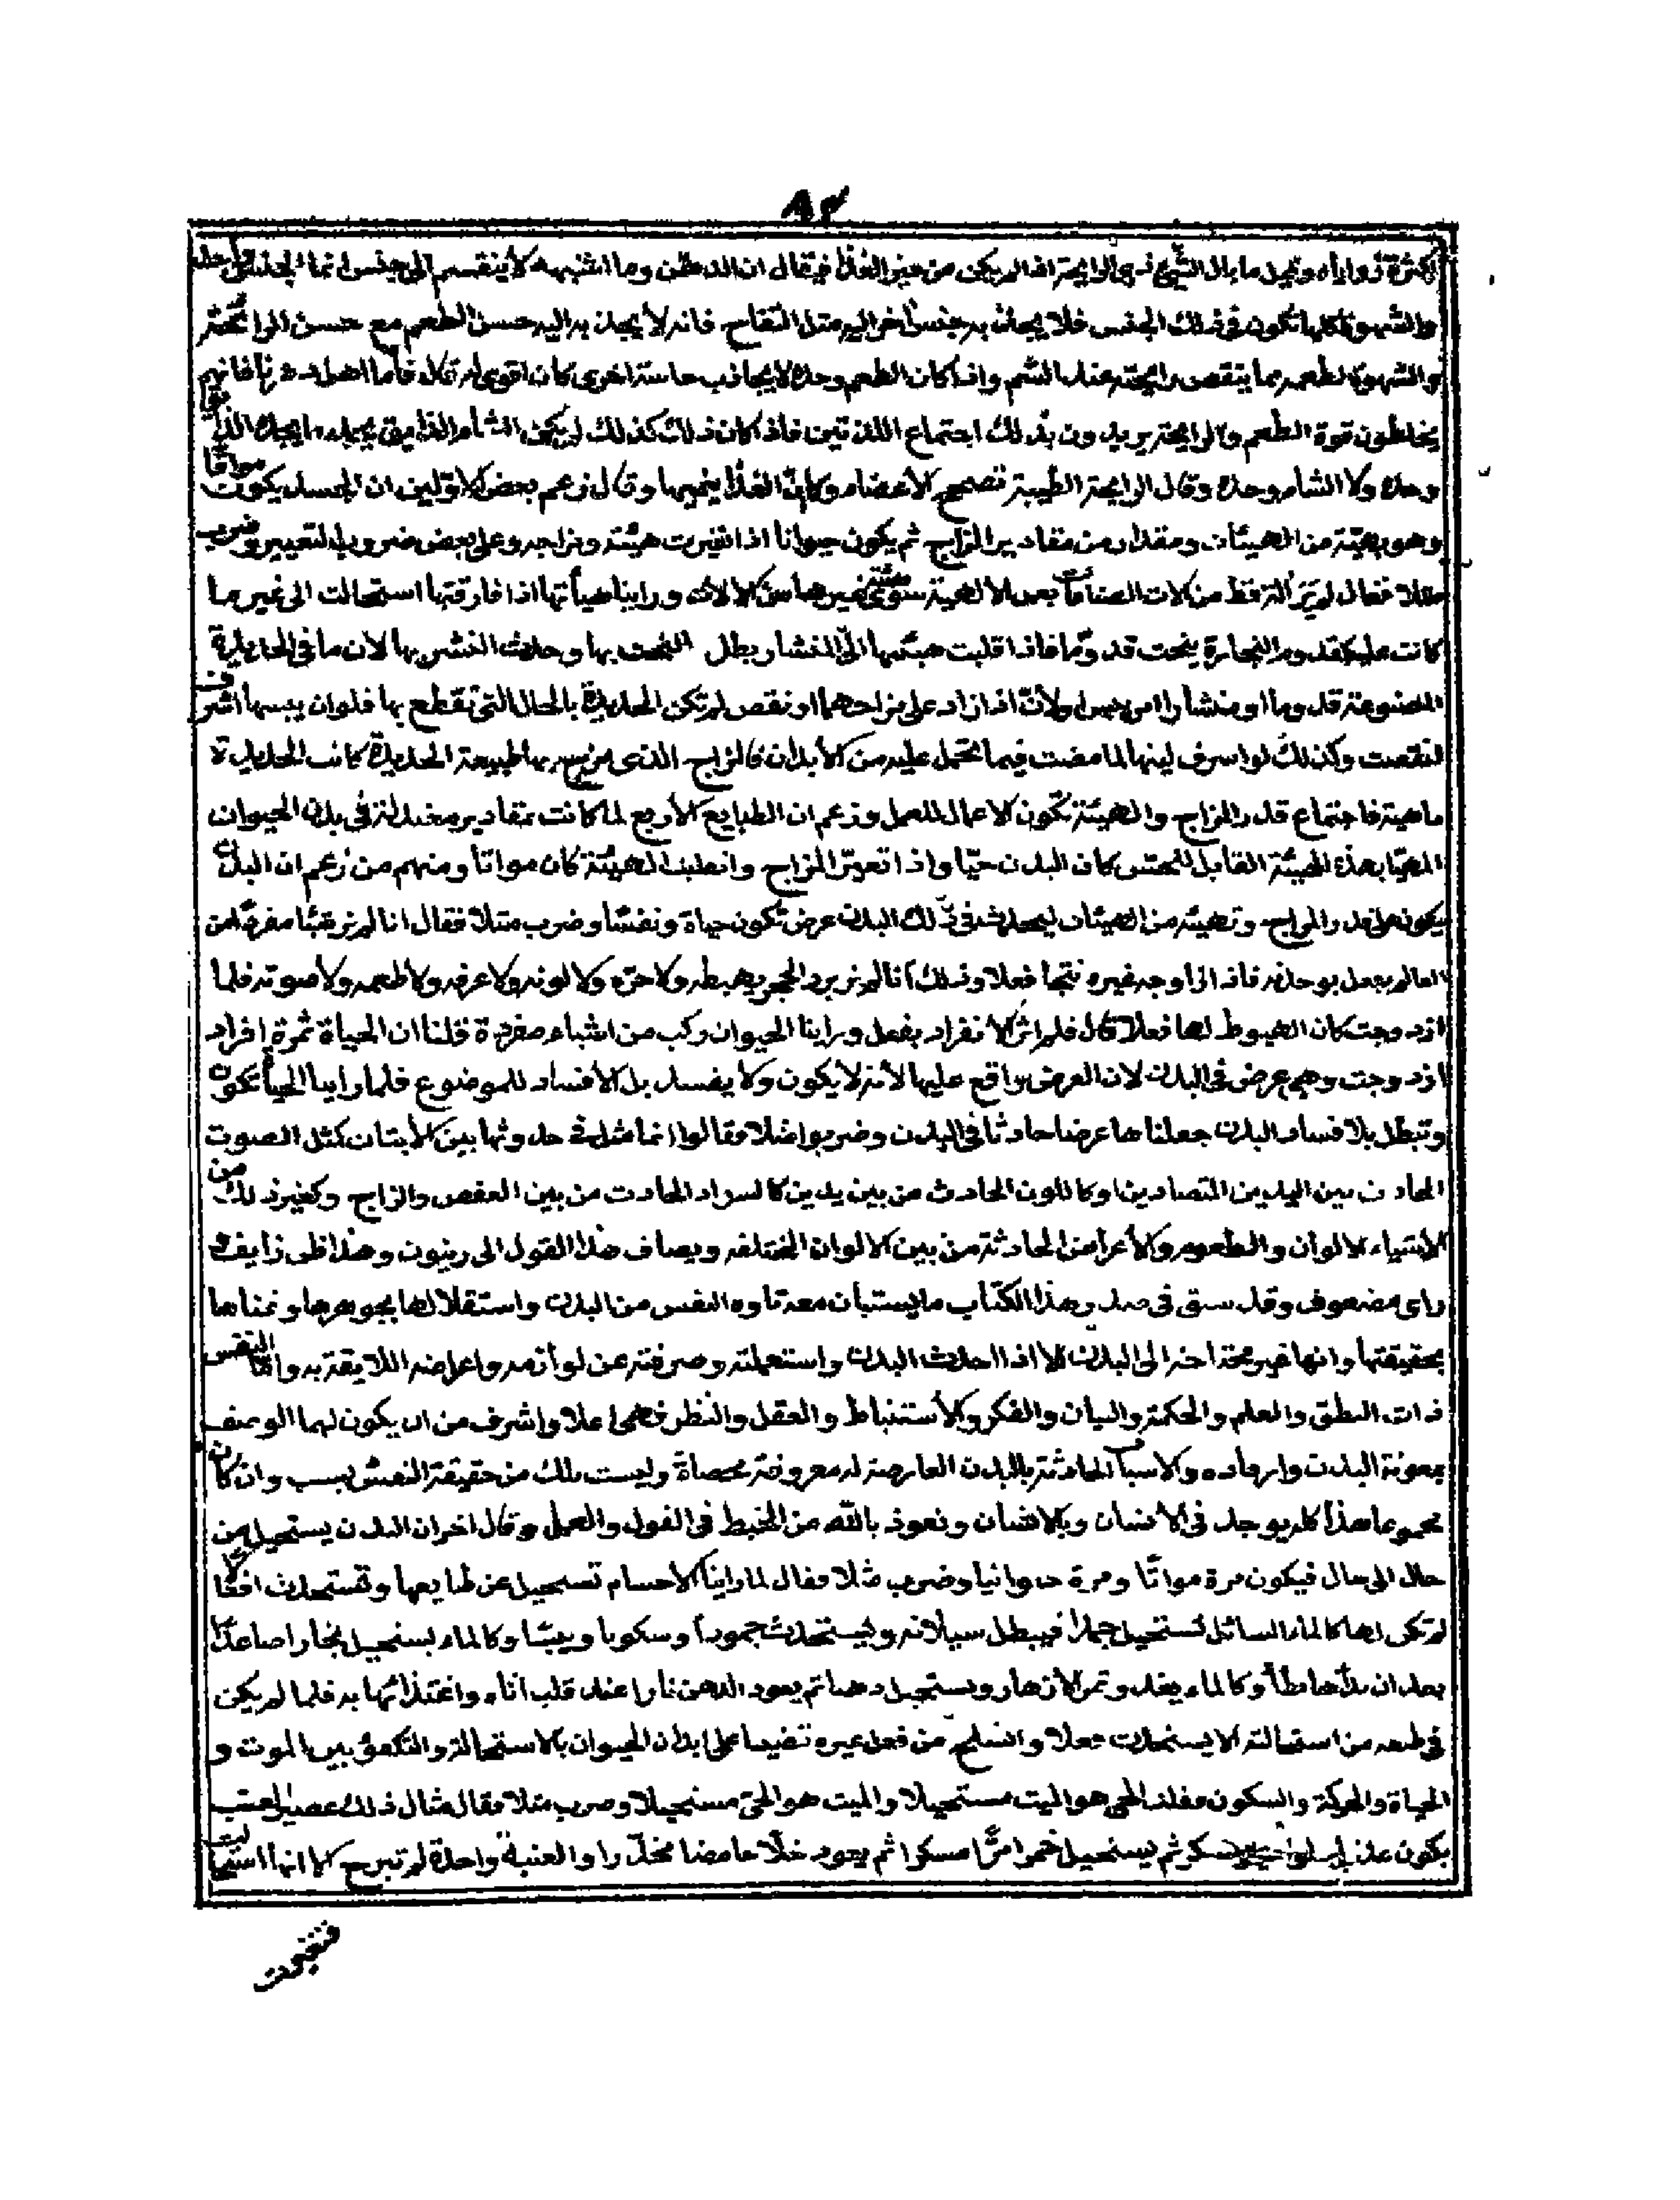 ٨٣
لكثرة زواياه وقيل ما بال الشيئ ذي الرايحة اذ لم يكن من غير الغذا فيقال ان الدهن وما اشبهه لا ينقسم الى جنس انما الجنس واحد
والشهوة كلها تكون في ذلك الجنس فلا يجاذبه جنس اخر اليه مثل التفاح فانه لا يجذبه اليه حسن الطعم مع حسن الرايحة
والشهوة لطعمه مما ينقص رايحته عند الشم واذا كان الطعم وحده لا يجاذب حاسة اخرى كان اقوى له قال فاما اهل فانهم
يخلطون قوة الطعم والرايحة يريدون بذلك اجتماع اللذتين فاذا كان ذلك كذلك لم يكن الشام الذايق يجد ما يجد الذايق
وحده ولا الشام وحده وقال الرايحة الطيبة تصحح الاعضاء وكان الغذا ينميها وقال زعم بعض الاولين ان الجسد يكون مواتا
وهو بهيئة من الهيئات ومقدار من مقادير المزاج ثم يكون حيوانا اذا تغيرت هيئته ومزاجه وعلى بعض ضروب التغيير وضرب
مثلا فقال لم نر الة قط من الات الصناعات بعد الالهية سوى غيرها من الالات وراينا هيأتها اذا فارقتها استحالت الى غير ما
كانت عليه كقدوم النجارة ينحت قدوما فاذا قلبت هيئتها الى المنشار بطل النحت بها وحدث النشر بها لان ما في الحديدة
المصنوعة قدوما او منشارا من يبس ولان اذا زاد على مزاجهما او نقص لم تكن الحديدة بالحال التي تقطع بها فلو ان يبسها اشرف
لنقصت وكذلك لو اسرف لينها لما مضت فيما تحمل عليه من الابدان فالمزاج الذي بها طبيعة الحديدة كانت الحديدة
ماهية فاجتماع قدر المزاج والهيئة تكون الاعمال للعمل وزعم ان الطبايع الاربع لما كانت بمقادير معتدلة في بدن الحيوان
المهيا بهذه الهيئة القابل للحس كان البدن حيا واذا تغير المزاج وانقلبت الهيئة كان مواتا ومنهم من زعم ان البدن
يكون على قدر المزاج وتهيئه من الهيئات ليحدث في ذلك البدن عرض تكون حياة ونفسا وضرب مثلا فقال انا لم نر شيئا مفردا من
العالم يعمل بوحدته فاذا ازدوجه غيره نتجا فعلا وذلك انا لم نر برد الحجر يهبطه ولا حره ولا لونه ولا عرضه ولا طعمه ولا صوته فلما
ازدوجت كان الهبوط لها فعلا قال فلم ار الانفراد يفعل وراينا الحيوان ركب من اشياء مفردة قلنا ان الحياة ثمرة افراد
ازدوجت وهي عرض في البدن لان العرض واقع عليها لانه لا يكون ولا يفسد بل لافساد للموضوع فلما راينا الحياة تكون
وتبطل بلا فساد البدن جعلناها عرضا حادثا في البدن وضربوا مثلا فقالوا انما مثله في حدوثها بين الابدان كمثل الصوت
الحادث بين اليدين المتصادمين او كاللون الحادث من بين يدين كالسواد الحادث من بين العفص والزاج وكغير ذلك من
الاشياء الالوان والطعوم والاعراض الحادثة من بين الالوان المختلفة ويضاف هذا القول الى رينون وهذا ظن زايف و
راى مضعوف وقد سبق في صدر هذا الكتاب ما يستبان معه تاوه النفس من البدن واستقلالها بجوهرها
بحقيقتها وانها غير محتاجة الى البدن الا اذا احدث البدن واستعملته وصرفته عن لوازمه واعراضه اللايقة به واما النفس
ذات النطق والعلم والحكمة والبيان والفكر والاستنباط والعقل والنظر فهي اعلا واشرف من ان يكون لهما الوصف
بمعونة البدن وارهاده والاسباب الحادثة بالبدن العارضة له معروفة محصاة وليست تلك من حقيقة النفس بسبب وان كان
مجموعا هذا كله يوجد في الانسان وبالانسان ونعوذ بالله من الخبط في القول والعمل وقال اخر ان البدن يستحيل من
حال الى حال فيكون مرة مواتا ومرة حيوانيا وضرب مثلا فقال لما راينا الاجسام تستحيل عن طبايعها وتستحدث افعالا
لم تكن لها كالماء السائل تستحيل جمدا فيبطل سيلانه ويستحدث جمودا وسكونا ويبسا وكالماء يستحيل بخارا صاعدا
بعد ان بدا هابطا وكالماء يغذو ثمر الازهار ويستحيل دهنا ثم يعود الدهن نارا عند قلب اناء واغتذائها به فلما لم يكن
في طعمه من استحالته الا يستحدث فعلا وانسلخ من فعل غيره قضينا على ابدان الحيوان بالاستحالة والتكون بين الموت و
الحياة والحركة والسكون فقلنا الحي هو الميت مستحيلا والميت هو الحي مستحيلا وضرب مثلا فقال مثال ذلك عصير العنب
يكون عذبا سكر ثم يستحيل خمرا مرا مسكرا ثم يعود خلا حامضا مخدرا والعنبة واحدة لم تبرح الا انها استحالت
فتغيرت